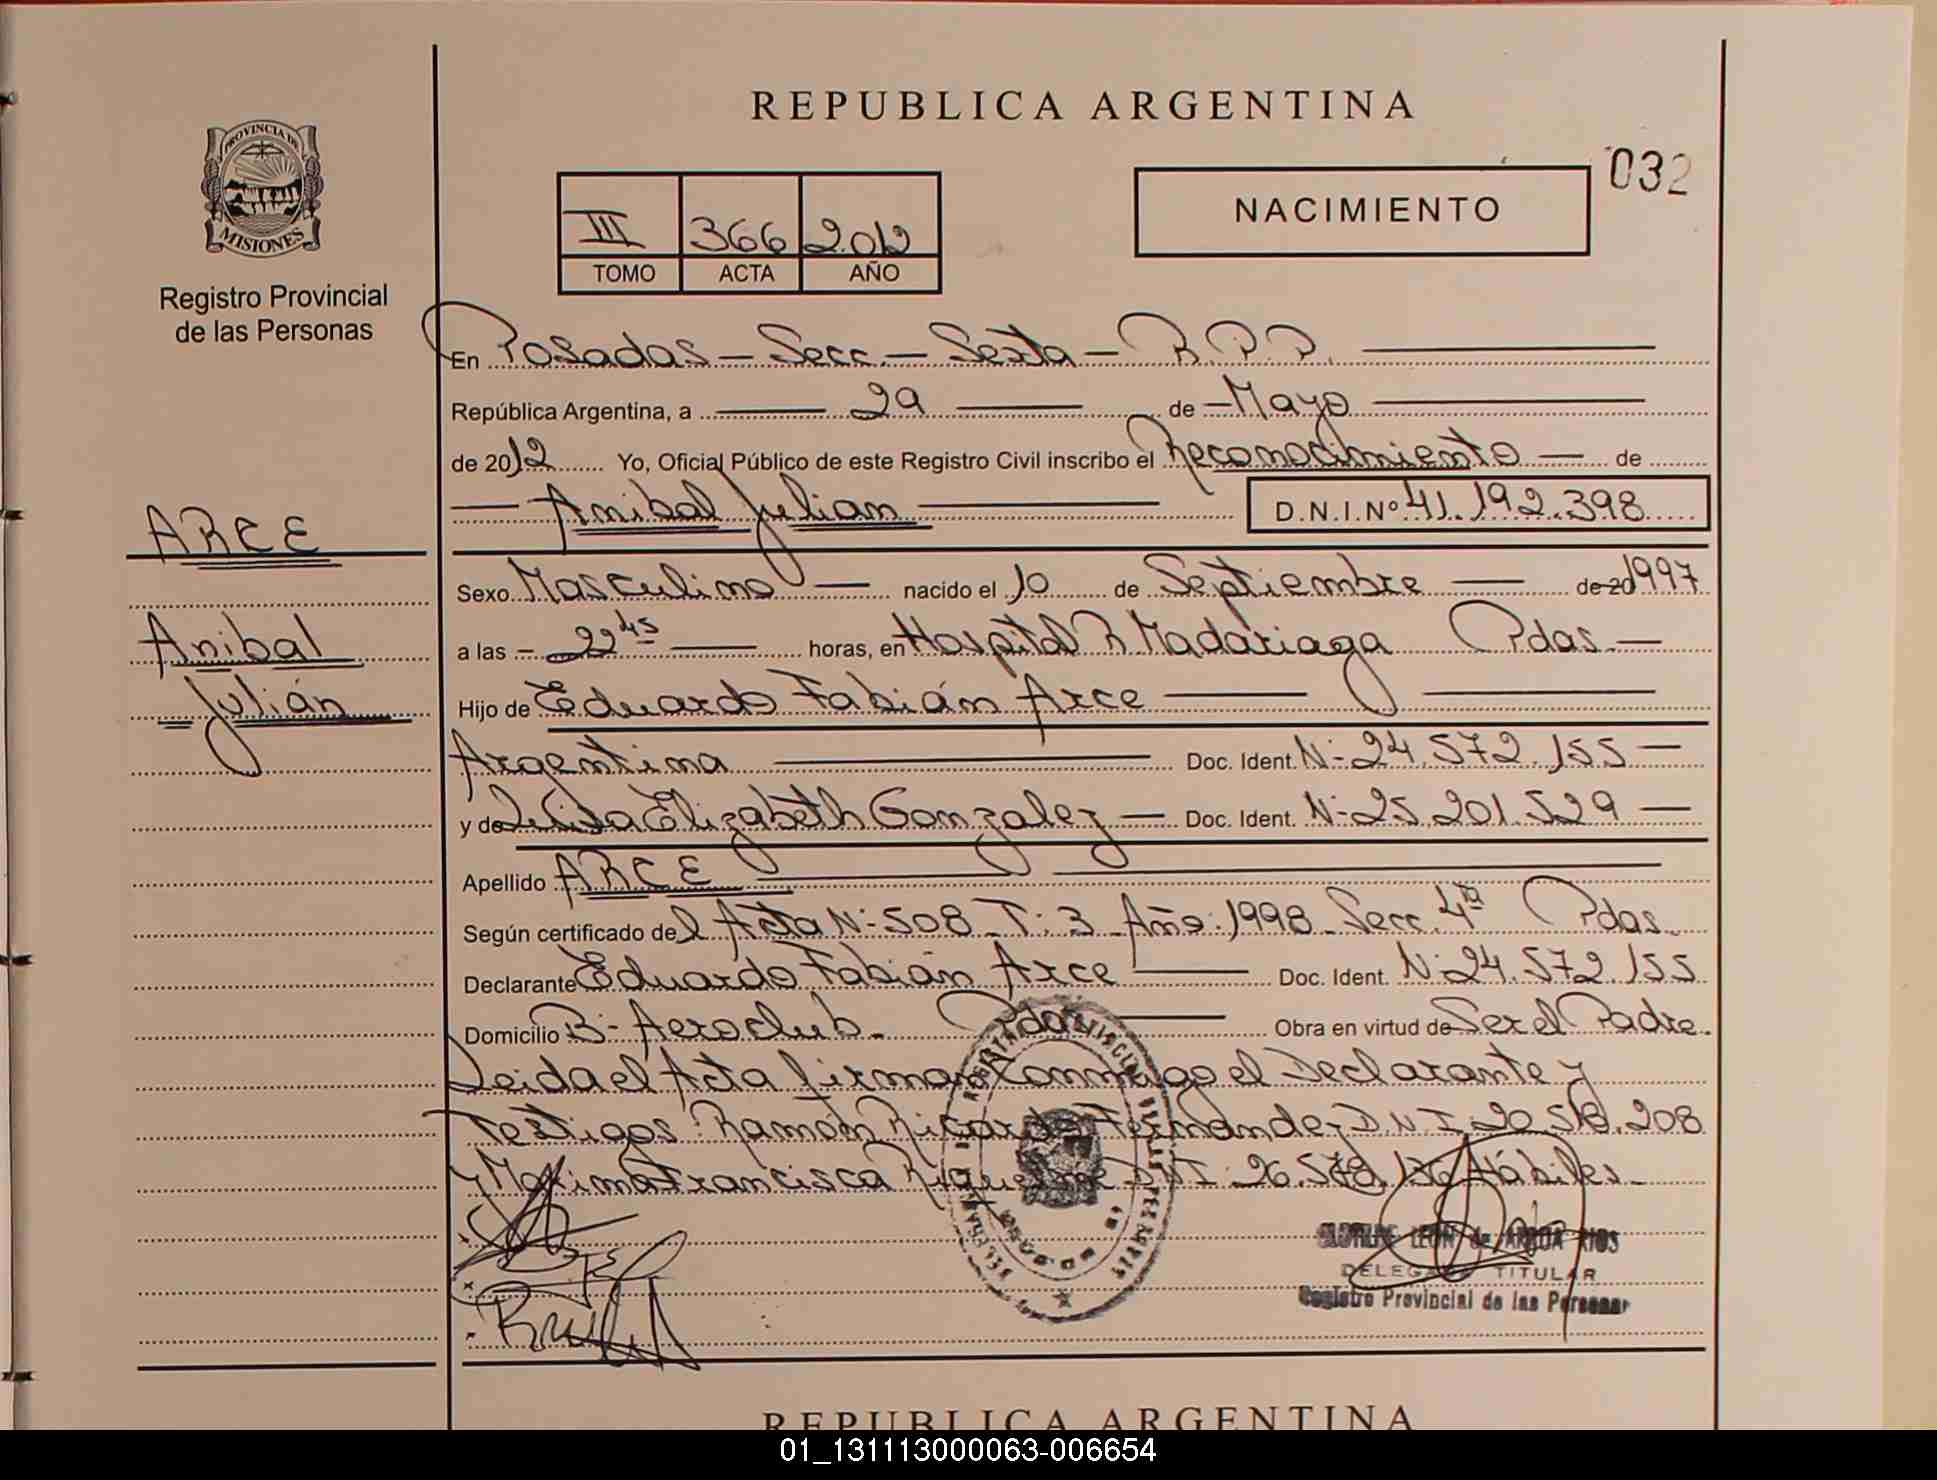 REPUBLICA ARGENTINA
032
PROVINCIA DE
MISIONES
Registro Provincial
de las Personas
III 366 2012
TOMO ACTA AÑO
NACIMIENTO
En Posadas - Secc. - Sexta - R.P.P.
República Argentina, a 29 de Mayo
de 2012 Yo, Oficial Público de este Registro Civil inscribo el Reconocimiento de
Anibal Julian D.N.I.Nº 41.192.398
ARCE
Anibal
Julián
Sexo Masculino nacido el 10 de Septiembre de 20 1997
a las 22 45 horas, en Hospital R Madariaga Pdas.
Hijo de Eduardo Fabián Arce
Argentina Doc. Ident. N- 24.572.155
y de Elizabeth Gonzalez Doc. Ident. N- 25.201.529
Apellido ARCE
Según certificado del Acta N- 508 - T: 3 - Año: 1998 - Secc. 4ª Pdas.
Declarante Eduardo Fabián Arce Doc. Ident. N- 24.572.155
Domicilio B- Aeroclub - Pdas Obra en virtud de Ser el Padre.
Leida el Acta firman Conmigo el Declarante y
Testigos: Ramón Ricardo Fernandez D.N.I. 208
y Maxima Francisca Riquelme DNI: 26. Hábiles.
LEON de RIOS
DELEGADA TITULAR
Registro Provincial de las Personas
REPUBLICA ARGENTINA
01_131113000063-006654